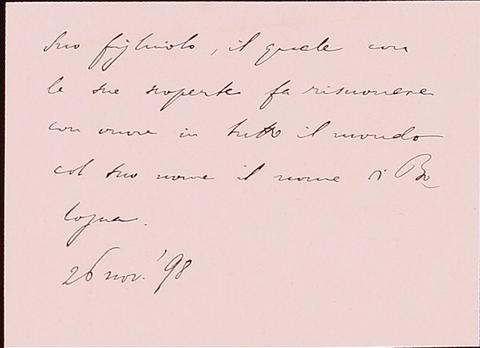 suo figliuolo, il quale con
le sue scoperte fa risuonare
con onore in tutto il mondo
col suo nome il nome di Bo
logna.
26 nov. '98